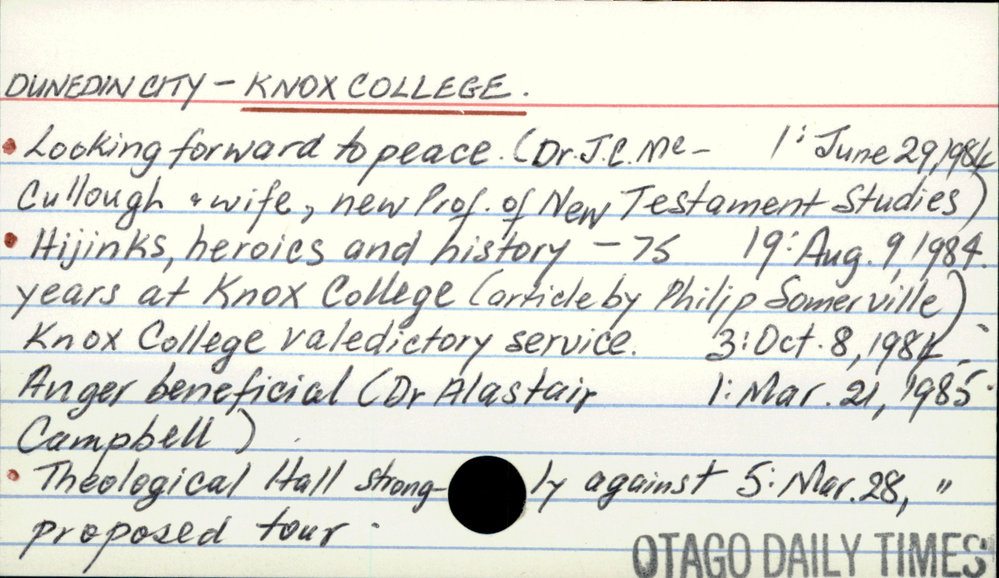 DUNEDIN CITY - KNOX COLLEGE.
• Looking forward to peace. (Dr. J.C. Mc- 1: June 29, 1984
Cullough & wife, new Prof. of New Testament Studies)
• Hijinks, heroics and history - 75 19: Aug. 9, 1984.
years at Knox College (article by Philip Somerville)
Knox College valedictory service. 3: Oct. 8, 1984.
Anger beneficial (Dr Alastair 1: Mar. 21, 1985.
Campbell).
• Theological Hall strong- ly against 5: Mar. 28, "
proposed tour.
OTAGO DAILY TIMES